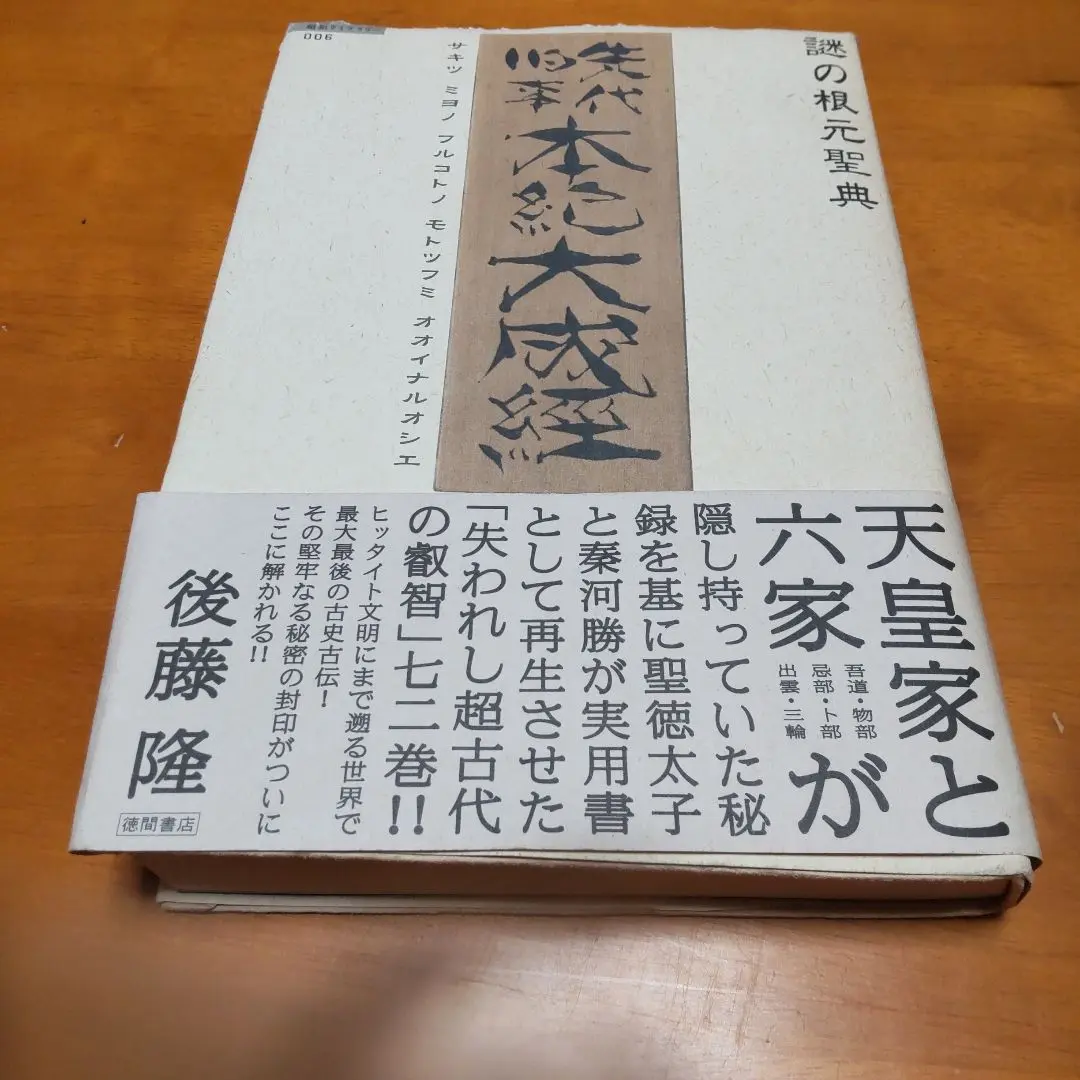 006
謎の根元聖典
先代
旧事
本紀大成経
サキツ ミヨノ フルコトノ モトツフミ オオイナルオシエ
天皇家と
六家が
吾道・物部
忌部・卜部
出雲・三輪
隠し持っていた秘
録を基に聖徳太子
と秦河勝が実用書
として再生させた
「失われし超古代
の叡智」七二巻!!
ヒッタイト文明にまで遡る世界で
最大最後の古史古伝!
その堅牢なる秘密の封印がついに
ここに解かれる!!
後藤 隆
徳間書店